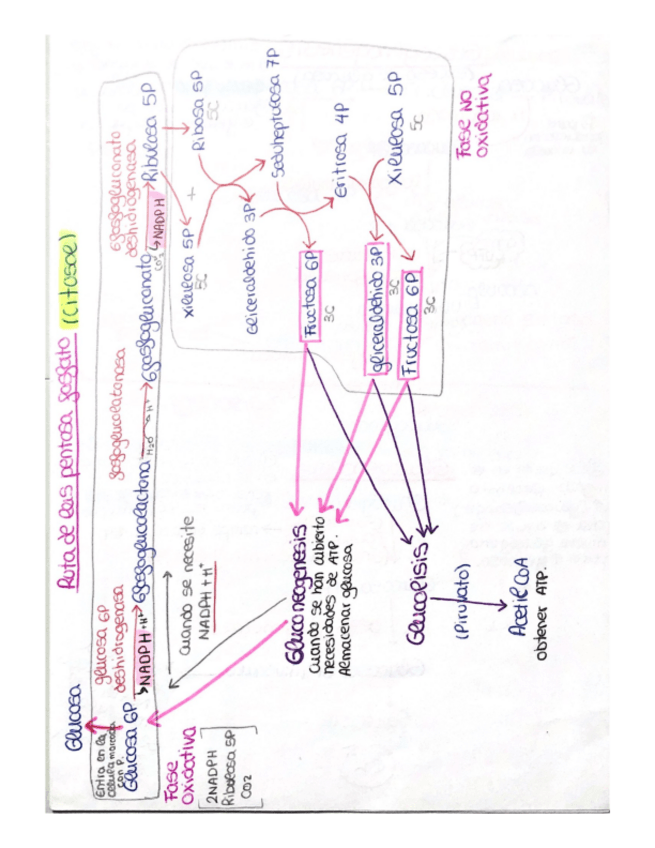 Ruta de las pentosa fosfato (Citosol)
Glucosa
Entra en la
célula marcada
con P.
Glucosa 6P
glucosa 6P
deshidrogenasa
NADPH + H⁺
6fosfogluconolactona
fosfogluconolactonasa
H₂O
H⁺
6fosfogluconato
6fosfogluconato
deshidrogenasa
CO₂
NADPH
Ribulosa 5P
Fase
Oxidativa
2NADPH
Ribulosa 5P
CO₂
cuando se necesite
NADPH + H⁺
Xilulosa 5P
5C
+
Ribosa 5P
5C
Gliceraldehido 3P
Seduheptulosa 7P
Fructosa 6P
3C
Eritrosa 4P
gliceraldehido 3P
3C
Xilulosa 5P
5C
Fructosa 6P
3C
Fase NO
oxidativa
Gluconeogenesis
Cuando se han cubierto
necesidades de ATP.
Almacenar glucosa
Glucolisis
(Piruvato)
Acetil CoA
obtener ATP.